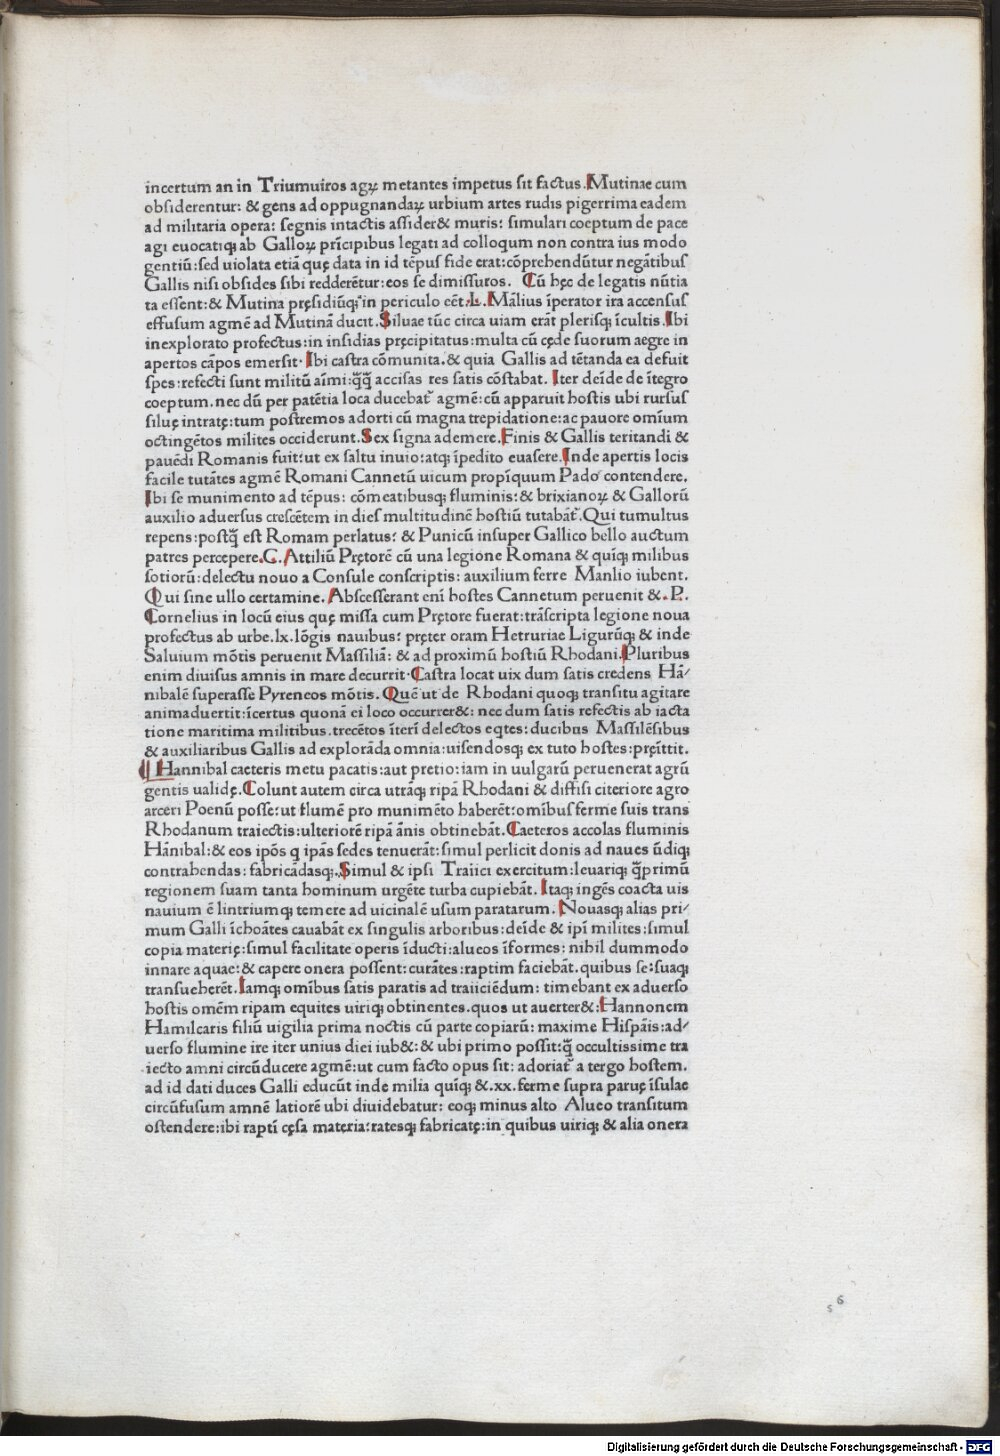 incertum an in Triumuiros agꝝ metantes impetus sit factus. Mutinae cum
obsiderentur: & gens ad oppugnandaꝝ urbium artes rudis pigerrima eadem
ad militaria opera: segnis intactis assider& muris: simulari coeptum de pace
agi euocatiq; ab Galloꝝ prīcipibus legati ad colloqum non contra ius modo
gentiū: sed uiolata etiā quę data in id tēpus fide erat: cōprehendūtur negātibus
Gallis nisi obsides sibi redderētur: eos se dimissuros. Cū hęc de legatis nūtia
ta essent: & Mutina pręsidiūq; in periculo eēt. L. Mālius īperator ira accensus
effusum agmē ad Mutinā ducit. Siluae tūc circa uiam erāt plerisq; īcultis. Ibi
inexplorato profectus: in insidias pręcipitatus: multa cū cęde suorum aegre in
apertos cāpos emersit. Ibi castra cōmunita. & quia Gallis ad tētanda ea defuit
spes: refecti sunt militū aīmi: q̄q̄ accisas res satis cōstabat. Iter deīde de ītegro
coeptum. nec dū per patētia loca ducebat᷑ agmē: cū apparuit hostis ubi rursus
siluę intratę: tum postremos adorti cū magna trepidatione: ac pauore omīum
octingētos milites occiderunt. Sex signa ademere. Finis & Gallis teritandi &
pauēdi Romanis fuit: ut ex saltu inuio: atq; īpedito euasere. Inde apertis locis
facile tutātes agmē Romani Cannetū uicum propīquum Pado contendere.
Ibi se munimento ad tēpus: cōmeatibusq; fluminis: & brixianoꝝ & Gallorū
auxilio aduersus crescētem in dies multitudinē hostiū tutabāt᷑. Qui tumultus
repens: postq̄ est Romam perlatus: & Punicū insuper Gallico bello auctum
patres percepere. C. Attiliū Prętorē cū una legione Romana & quīq; milibus
sotiorū: delectu nouo a Consule conscriptis: auxilium ferre Manlio iubent.
Qui sine ullo certamine. Abscesserant enī hostes Cannetum peruenit &. P.
Cornelius in locū eius quę missa cum Prętore fuerat: trāscripta legione noua
profectus ab urbe. lx. lōgis nauibus: pręter oram Hetruriae Ligurūq; & inde
Saluium mōtis peruenit Massiliā: & ad proximū hostiū Rhodani. Pluribus
enim diuisus amnis in mare decurrit. Castra locat uix dum satis credens Hā⸗
nibalē superasse Pyreneos mōtis. Quē ut de Rhodani quoq; transitu agitare
animaduertit: īcertus quonā ei loco occurrer&: nec dum satis refectis ab iacta
tione maritima militibus. trecētos īterī delectos eq̄tes: ducibus Massilēsibus
& auxiliaribus Gallis ad explorāda omnia: uisendosq; ex tuto hostes: pręīttit.
¶ Hannibal caeteris metu pacatis: aut pretio: iam in uulgarū peruenerat agrū
gentis ualidę. Colunt autem circa utrāq; ripā Rhodani & diffisi citeriore agro
arceri Poenū posse: ut flumē pro munimēto haberēt: omībus ferme suis trans
Rhodanum traiectis: ulteriorē ripā ānis obtinebāt. Caeteros accolas fluminis
Hānibal: & eos ipōs q ipās sedes tenuerāt: simul perlicit donis ad naues ūdiq;
contrahendas: fabricādasq;. Simul & ipsi Traiici exercitum: leuariq; q̄primū
regionem suam tanta hominum urgēte turba cupiebāt. Itaq; ingēs coacta uis
nauium ē lintriumq; temere ad uicinalē usum paratarum. Nouasq; alias pri⸗
mum Galli īchoātes cauabāt ex singulis arboribus: deīde & ipī milites: simul
copia materię: simul facilitate operis īducti: alueos īformes: nihil dummodo
innare aquae: & capere onera possent: curātes: raptim faciebāt. quibus se: suaq;
transueherēt. Iamq; omībus satis paratis ad traiiciēdum: timebant ex aduerso
hostis omēm ripam equites uiriq; obtinentes. quos ut auerter&: Hannonem
Hamilcaris filiū uigilia prima noctis cū parte copiarū: maxime Hispāis: ad⸗
uerso flumine ire iter unius diei iub&: & ubi primo possit: q̄ occultissime tra
iecto amni circūducere agmē: ut cum facto opus sit: adoriat᷑ a tergo hostem.
ad id dati duces Galli educūt inde milia quīq; &. xx. ferme supra paruę īsulae
circūfusum amnē latiorē ubi diuidebatur: eoq; minus alto Alueo transitum
ostendere: ibi raptī cęsa materia: ratesq; fabricatę: in quibus uiriq; & alia onera
s 6
Digitalisierung gefördert durch die Deutsche Forschungsgemeinschaft - DFG